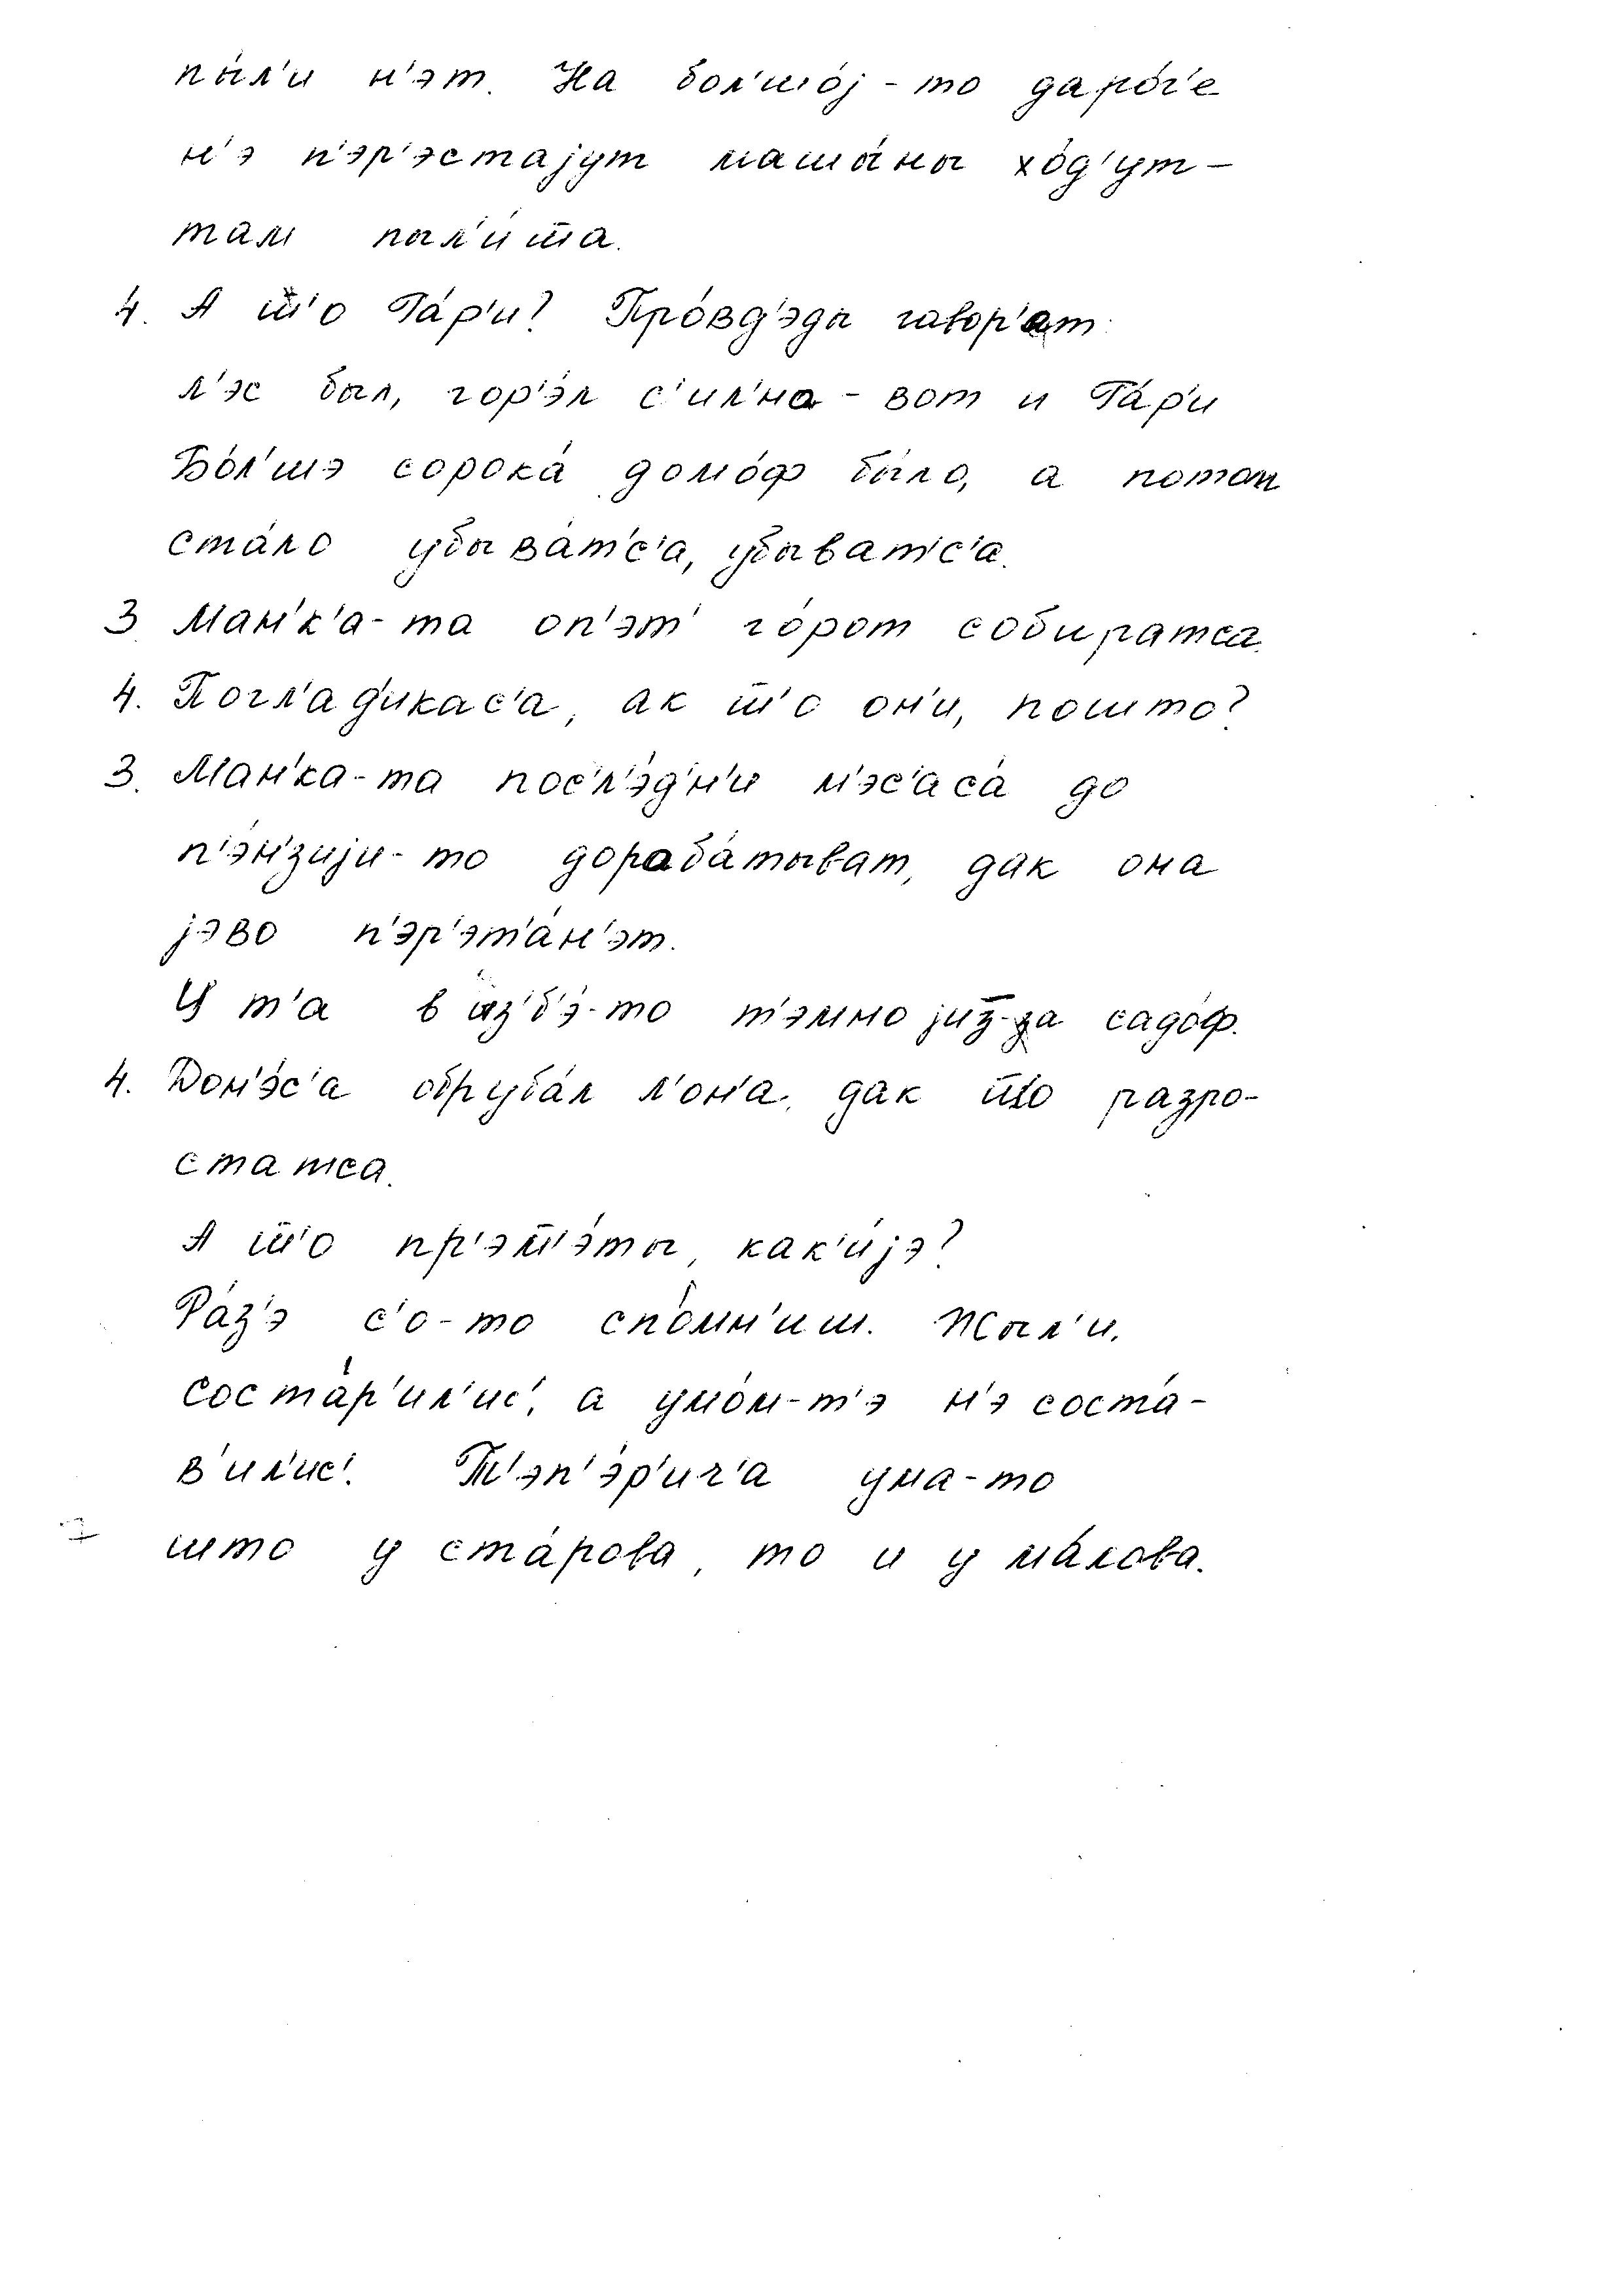 пы́л'и н'эт. На бол'шо́j-то даро́г'е
н'э п'эр'эстаjут машы́ны хо́д'ут –
там пыл'и́т̅а.
4. А т̅'о Га́р'и? Про́вд'эды говор'ат:
л'эс был, гор'э́л с'ил'но – вот и Га́р'и
Бо́л'шэ сорока́ домо́ф бы́ло, а потом
ста́ло убыва́т'с'а, убыват'с'а.
3. Ман'к'а-та оп'эт' го́рот собиратса.
4. Погл'ад'икас'а, ак т̅'о он'и, пошто?
3. Ман'ка-та пос'л'э́д'н'и м'эс'аса́ до
п'э́н'зиjи-то дораба́тыват, дак она
jэво п'эр'эт'а́н'эт.
У т'а в из'б'э́-то т'эмно jиз-за садо́ф.
4. Дон'э́с'а обруба́л л'он'а, дак т̅о разро-
статса.
А т̅'о пр'эт̅'э́ты, как'и́jэ?
Ра́з'э с'о-то спо́мн'иш. Жыл'и,
соста́р'ил'ис', а умо́м-т'э н'э соста́-
в'ил'ис'. Т'эп'э́р'ич'а ума-то
што у ста́рова, то и у ма́лова.